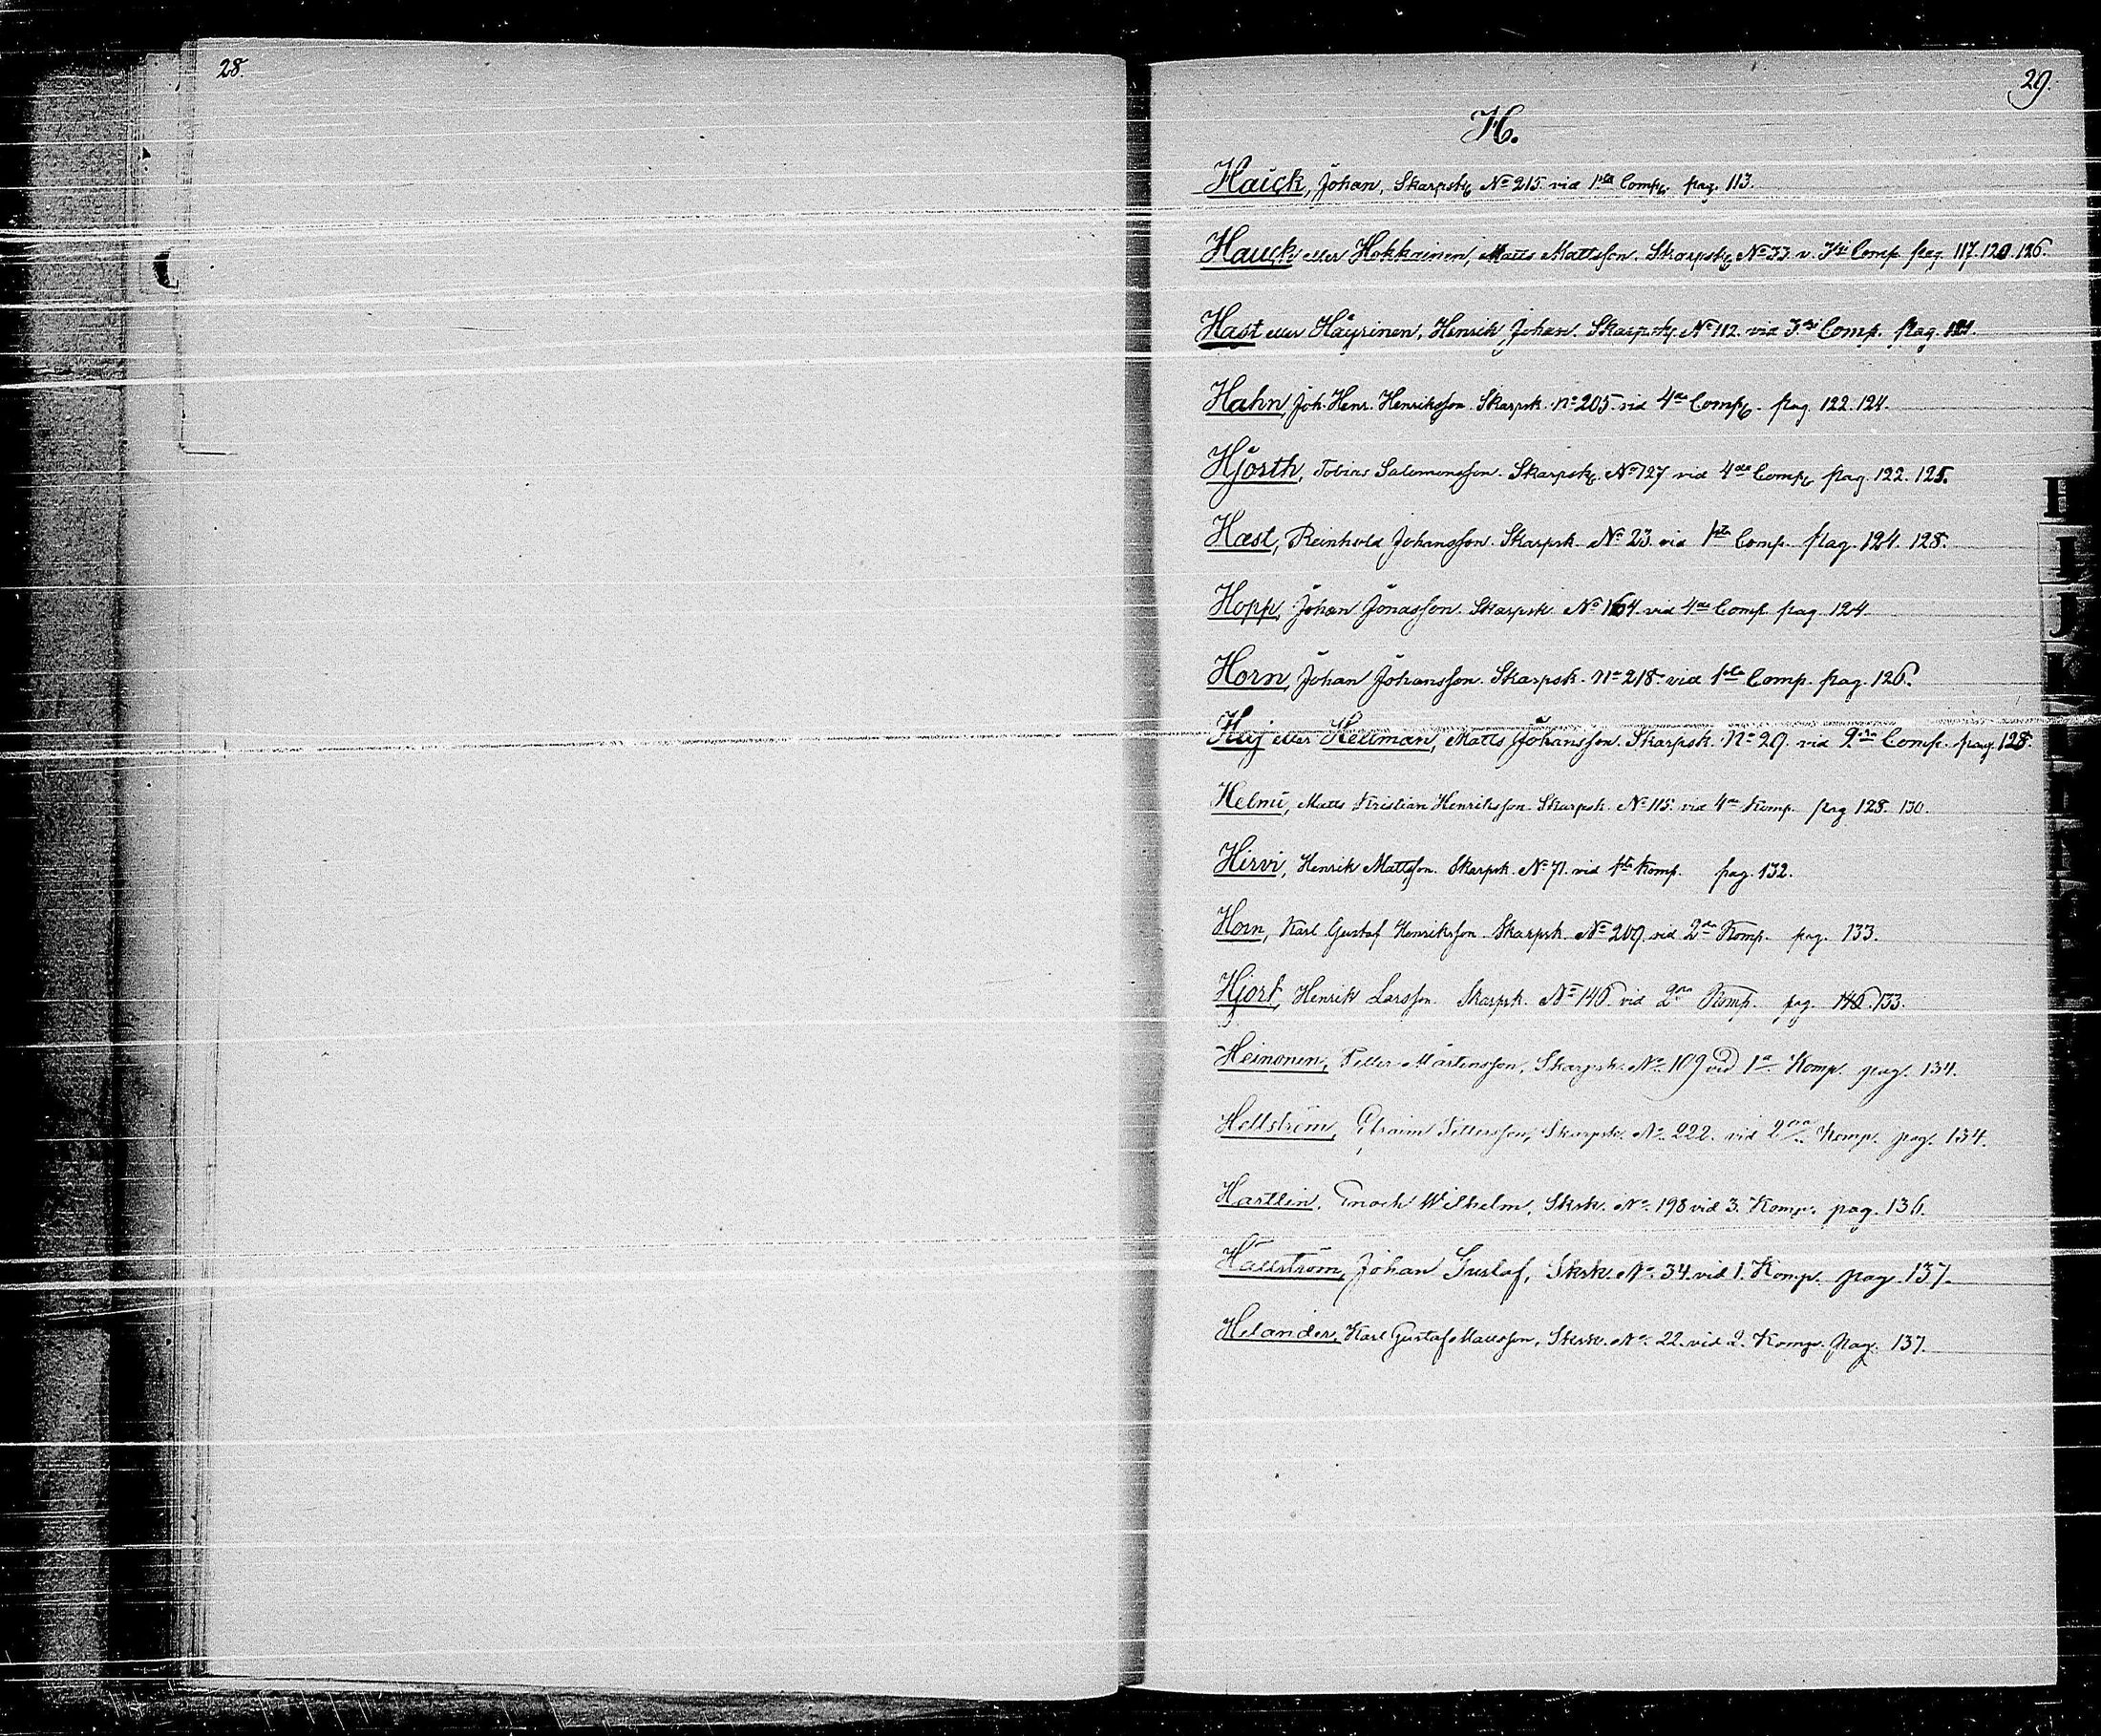 28.
29.
H.
Hauck, Johan, Skarpsk. No 215. vid 1sta Comp. pag. 113.
Hauck eller Hokkainen, Matts Mattsson. Skarpsk. No 33. v. 3dje Comp pag. 117. 120. 126.
Hast eller Häyrinen, Henrik Johan. Skarpsk. No 112. vid 3dje Comp. pag. 121.
Hahn, Joh. Henr. Henriksson. Skarpsk. No 205. vid 4de Comp. pag. 122. 124.
Hjorth, Tobias Salomonsson. Skarpsk. No 127 vid 4de Comp. pag. 122. 125.
Hast, Reinhold Johansson. Skarpsk. No 23. vid 1sta Comp. pag. 124. 128.
Hopp, Johan Jonasson. Skarpsk. No 164. vid 4de Comp. pag. 124.
Horn, Johan Johansson. Skarpsk. No 218. vid 1sta Comp. pag. 126.
Haj eller Hellman, Matts Johansson. Skarpsk. No 29. vid 2dra Comp. pag. 128.
Helmi, Matts Kristian Henriksson. Skarpsk. No 115. vid 4de Komp. pag 128. 130.
Hirvi, Henrik Mattsson. Skarpsk. No 71. vid 1sta Komp. pag. 132.
Horn, Karl Gustaf Henriksson. Skarpsk. No 209. vid 2dra Komp. pag. 133.
Hjort, Henrik Larsson. Skarpsk. No 146 vid 2dra Komp. pag. 146. 133.
Heinonen, Petter Mårtensson, Skarpsk. No. 109 vid 1a Komp. pag. 134.
Hellström, Efraim Pettersson, Skarpsk. No. 222. vid 2dra Komp. pag. 134.
Hartlin, Enoch Wilhelm, Sksk. No. 198 vid 3. Komp. pag. 136.
Hällström, Johan Gustaf, Sksk. No. 34 vid 1. Komp. pag. 137.
Helander, Karl Gustaf Mattsson, Sksk. No. 22. vid 2. Komp. pag. 137.
I
J
K